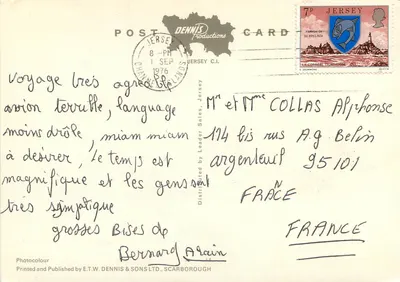 POST CARD
DENNIS
Productions
JERSEY C.I.
JERSEY
8 - PM
1 SEP
1976
CHANNEL ISLANDS
7P JERSEY
Voyage très agréable
avion terrible, language
moins drôle, miam miam
à désirer, le temps est
magnifique et les gens sont
très sympatique
grosses Bises de
Bernard Alain
Distributed by Leader Sales, Jersey.
Mr et Mme COLLAS Alphonse
114 bis rus A.g Belin
argenteuil 95101
FRANCE
FRANCE
Photocolour
Printed and Published by E.T.W. DENNIS & SONS LTD., SCARBOROUGH